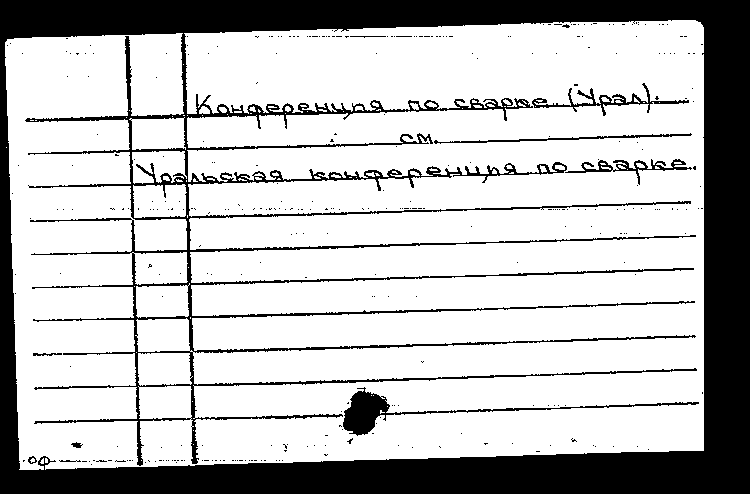 Конференция по сварке (Урал).
см.
Уральская конференция по сварке.
оф